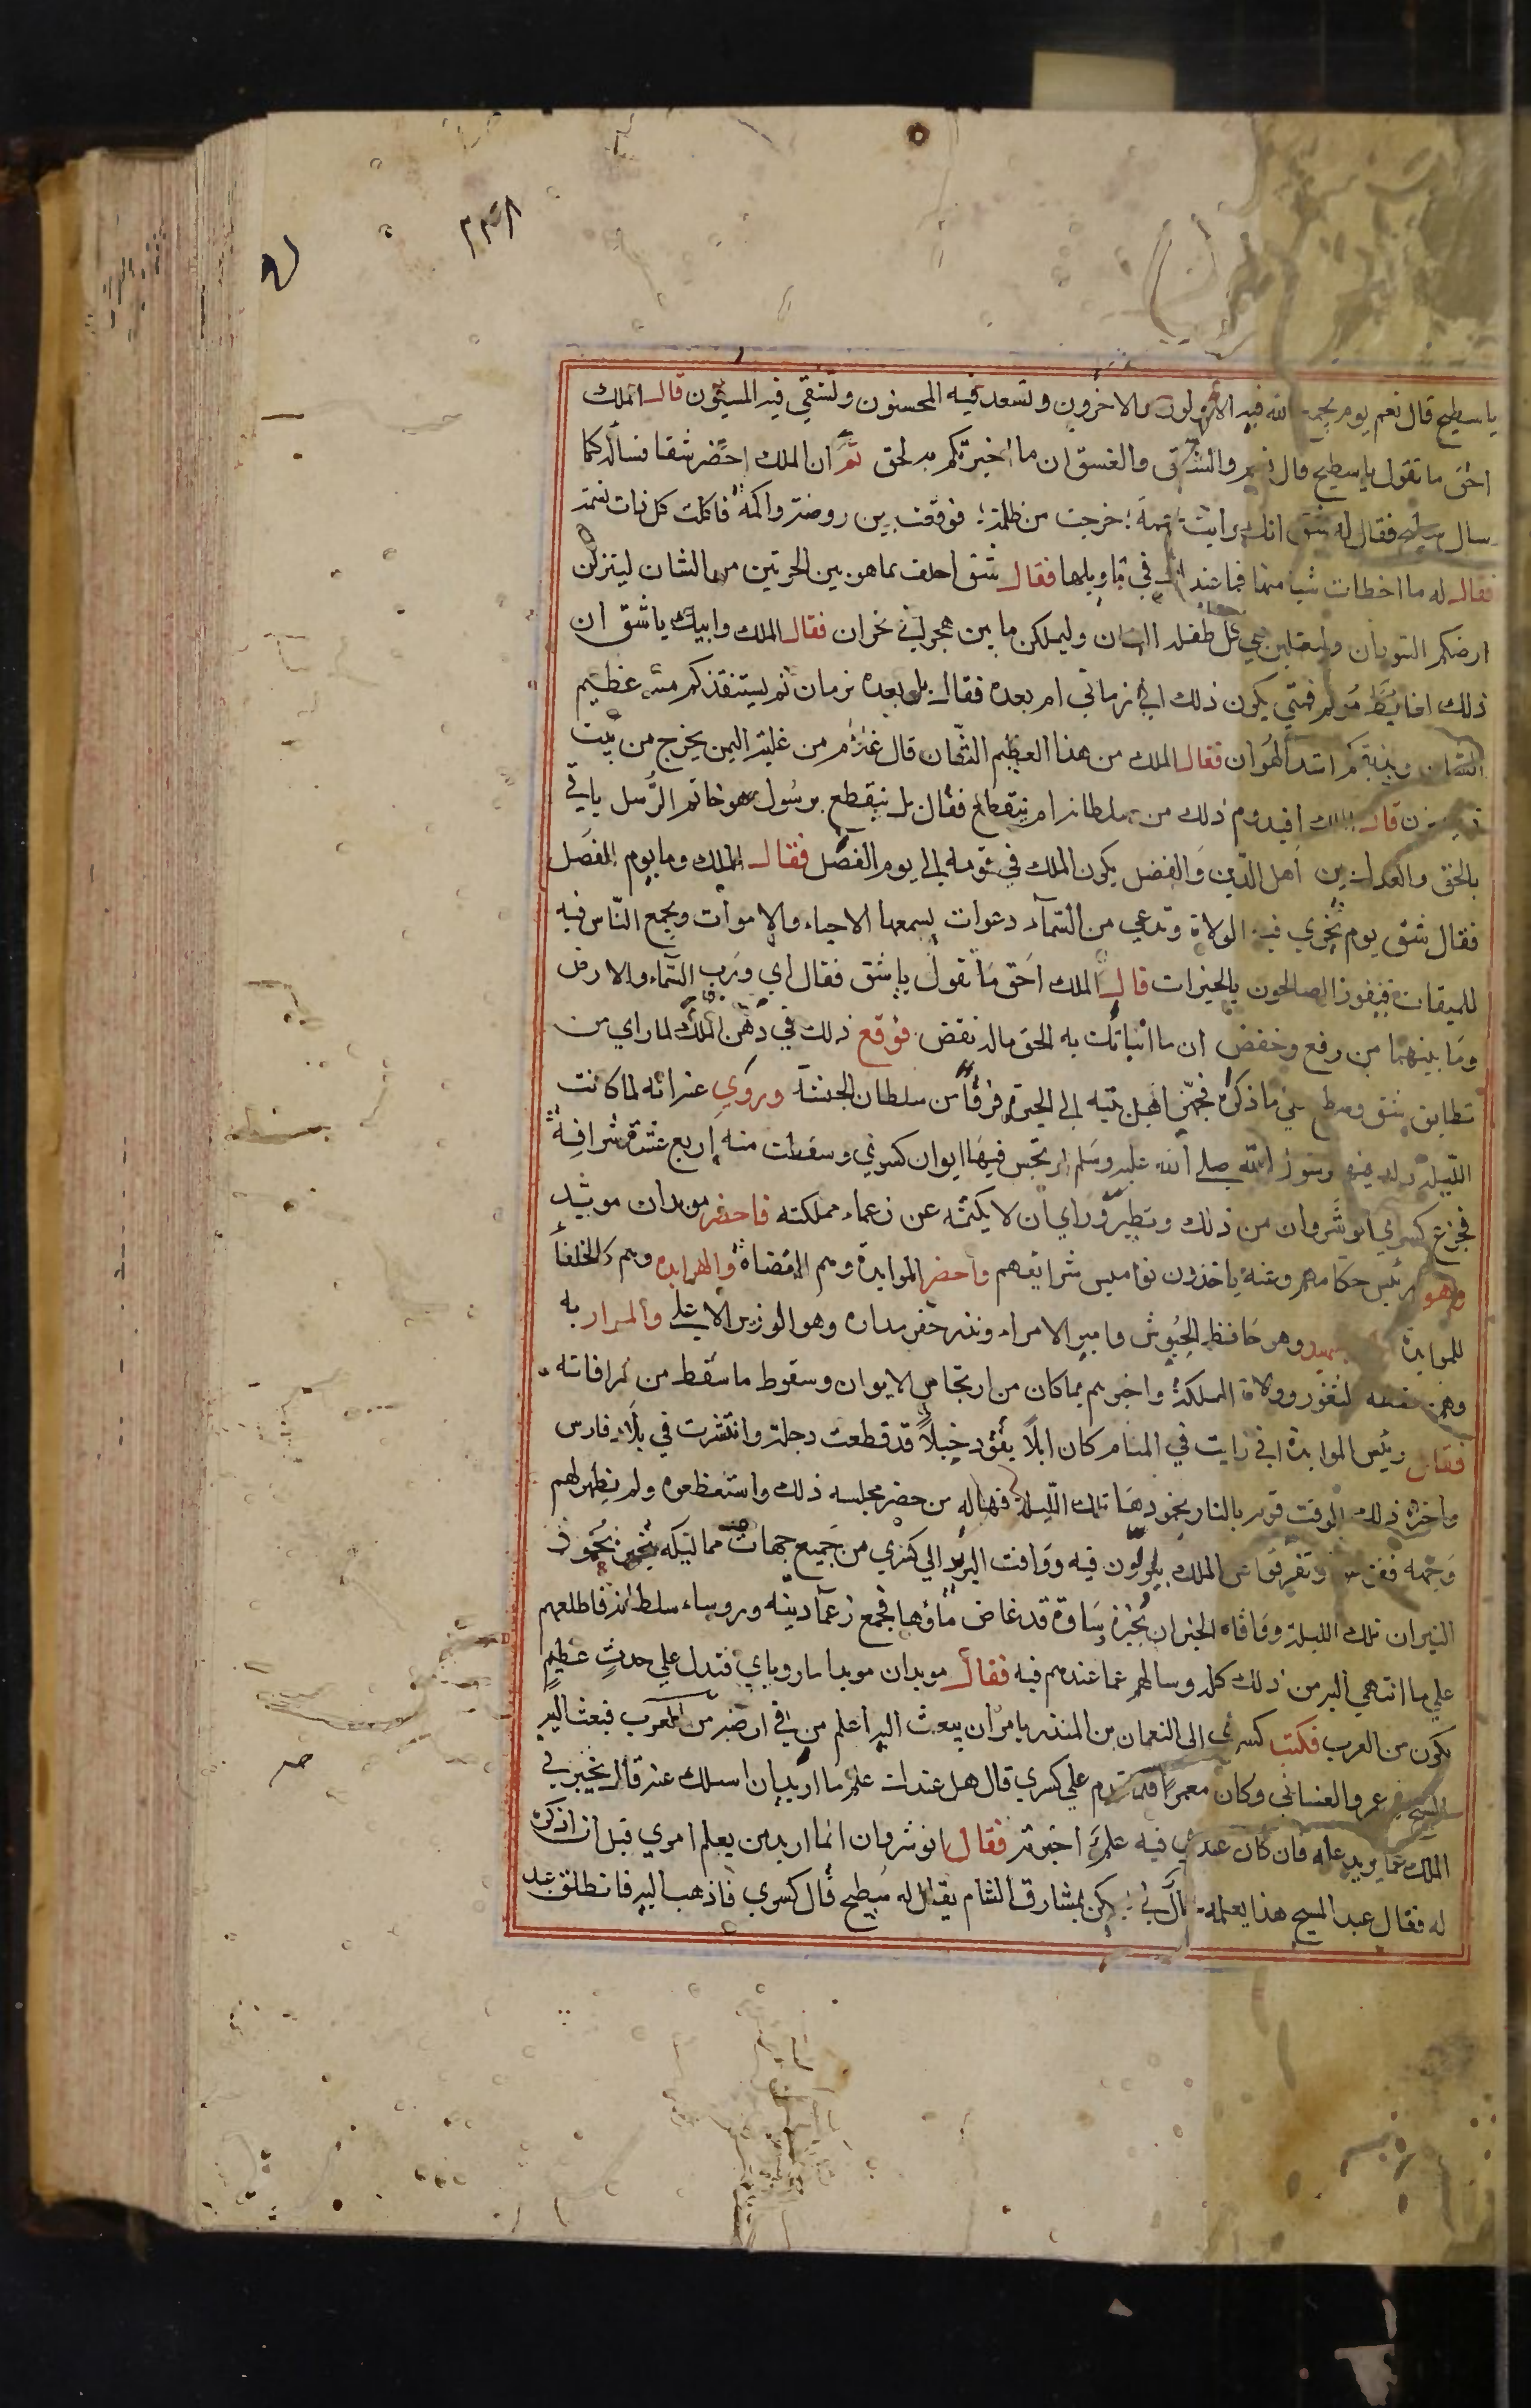 ٢٣٨
يا سطيح قال نعم يوم يجمع الله فيه الاولون والاخرون وتسعد فيه المحسنون وتشقي فيه المسيئون قال الملك
احق ما تقول يا سطيح قال نعم والشفق والغسق ان ما اخبرتكم به لحق ثم ان الملك احضر شقا فسأله كما
سال سطيح فقال له شق انك رايت حممة خرجت من ظلمة فوقعت بين روضة واكمة فاكلت كل ذات نسمة
فقال له ما اخطات شيا منها فما عندك في تاويلها فقال شق احلف بما هو بين الحرتين من الشان لينزلن
ارضكم السودان وليغلبن علي كل طفلة البنان وليملكن ما بين هجر الي نجران فقال الملك وابيك يا شق ان
ذلك لغايظ مؤلم فمتي يكون ذلك افي زماني ام بعده فقال بل بعده بزمان ثم يستنقذكم منه عظيم
الشان ويذيقكم اشد الهوان فقال الملك من هذا العظيم الشان قال غلام من غلمة اليمن يخرج من بيت
ذي يزن قال الملك افيدوم ذلك من سلطانه ام ينقطع فقال بل ينقطع برسول هو خاتم الرسل ياتي
بالحق والعدل بين اهل الدين والفضل يكون الملك في قومه الي يوم الفصل فقال الملك وما يوم الفصل
فقال شق يوم تجزي فيه الولاة وتدعي من السمآء دعوات يسمعها الاحياء والاموات ويجمع الناس فيه
للميقات فيفوز الصالحون بالخيرات قال الملك احق ما تقول يا شق فقال اي ورب السماء والارض
وما بينهما من رفع وخفض ان ما انباتك به الحق ماله نقض فوقع ذلك في ذهن الملك لما راي من
تطابق شق وسطح علي ما ذكراه فجهز اهل بيته الي الحيرة فرقا من سلطان الحبشة وروي عنه انه لما كانت
الليلة ولد فيها رسول الله صلي الله عليه وسلم ارتجس فيها ايوان كسري وسقطت منه اربع عشرة شرافة
فجزع كسري انوشروان من ذلك وتطير وراي ان لا يكتمه عن زعماء مملكته فاحضر موبدان موبيد
وهو رئيس حكامهم وعنه ياخذون نواميس شرايعهم واحضر الموابدة وهم القضاة والهرابده وهم كالخلفا
للموابدة وهو حافظ الجيوش وامير الامراء وبزرخفرمداره وهو الوزير الاعلي والمراربه
وهم حفظه الثغور وولاة المملكة واخبرهم بما كان من ارتجاس الايوان وسقوط ما سقط من شرافاته
فقال رئيس الموابدة اني رايت في المنام كان ابلا يقود خيلا قد قطعت دجلة وانتشرت في بلاد فارس
واخره ذلك الوقت قوم بالنار بخمودها تلك الليلة فهاله من حضر مجلسه ذلك واستعظموه ولم يظهر لهم
وجهه وتفرقوا عن الملك يلولون فيه ووافت البرد الي كسري من جميع جهات مماليكه بخبر بخمود
النيران تلك الليلة ووافاه الخبر ان بحيرة ساوة قد غاض ماؤها فجمع زعمآ دينه وروساء سلطانه فاطلعهم
علي ما انتهي اليه من ذلك كله وسالهم عما عندهم فيه فقال موبدان موبد اما روياي فتدل علي حدث عظيم
يكون من العرب فكتب كسري الي النعمان بن المنذر يامره ان يبعث اليه اعلم من في ارضه من العرب فبعث اليه
المسيح بن عمرو الغساني وكان معمرا فلما قدم علي كسري قال هل عندك علم ما اريد ان اسلك عنه قال يخبرني
الملك عما يريد علمه فان كان عندي فيه علم اخبرته فقال انوشروان انما اريد من يعلم امري قبل ان اذكره
له فقال عبد المسيح هذا يعلمه خال لي يسكن بمشارق الشام يقال له سطيح قال كسري فاذهب اليه فانطلق عبد